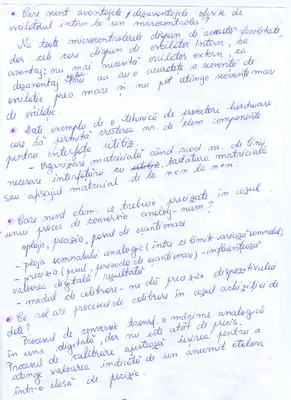 • Care sunt avantajele / dezavantajele oferite de
oscilatorul intern la un microcontroler?
Nu toate microcontrolerele dispun de această facilitate,
dar cele care dispun de oscilator intern, ca
avantaj: nu mai necesită oscilator extern, ca
dezavantaj au au o acuratețe a frecvenței de
oscilație prea mare și nu pot atinge frecvențe mari
de oscilație
• Dați exemplu de o tehnică de proiectare hardware
care să permită creșterea nr. de elem componente
pentru interfața utiliz.
- organizarea matricială când scad nr. de linii
necesare interfațării cu tastatura matricială
sau afișajul matricial de la m×n la m+n.
• Care sunt elem. ce trebuie precizate în cazul
unui proces de conversie analog-num?
plaja, precizia, pasul de eșantionare
- plaja semnalului analogic (între ce limite variază semnalul)
- precizia (pasul, perioada de eșantionare) - influențează
valoarea digitală rezultată
- modul de calibrare - ne dă precizia dispozitivului
• Ce rol are procesul de calibrare în cazul achiziției de
date?
Procesul de conversie transf. o mărime analogică
în una digitală, dar nu este atât de precis.
Procesul de calibrare ajustează ieșirea pentru a
atinge valoarea indicată de un anumit etalon
într-o clasă de precizie.